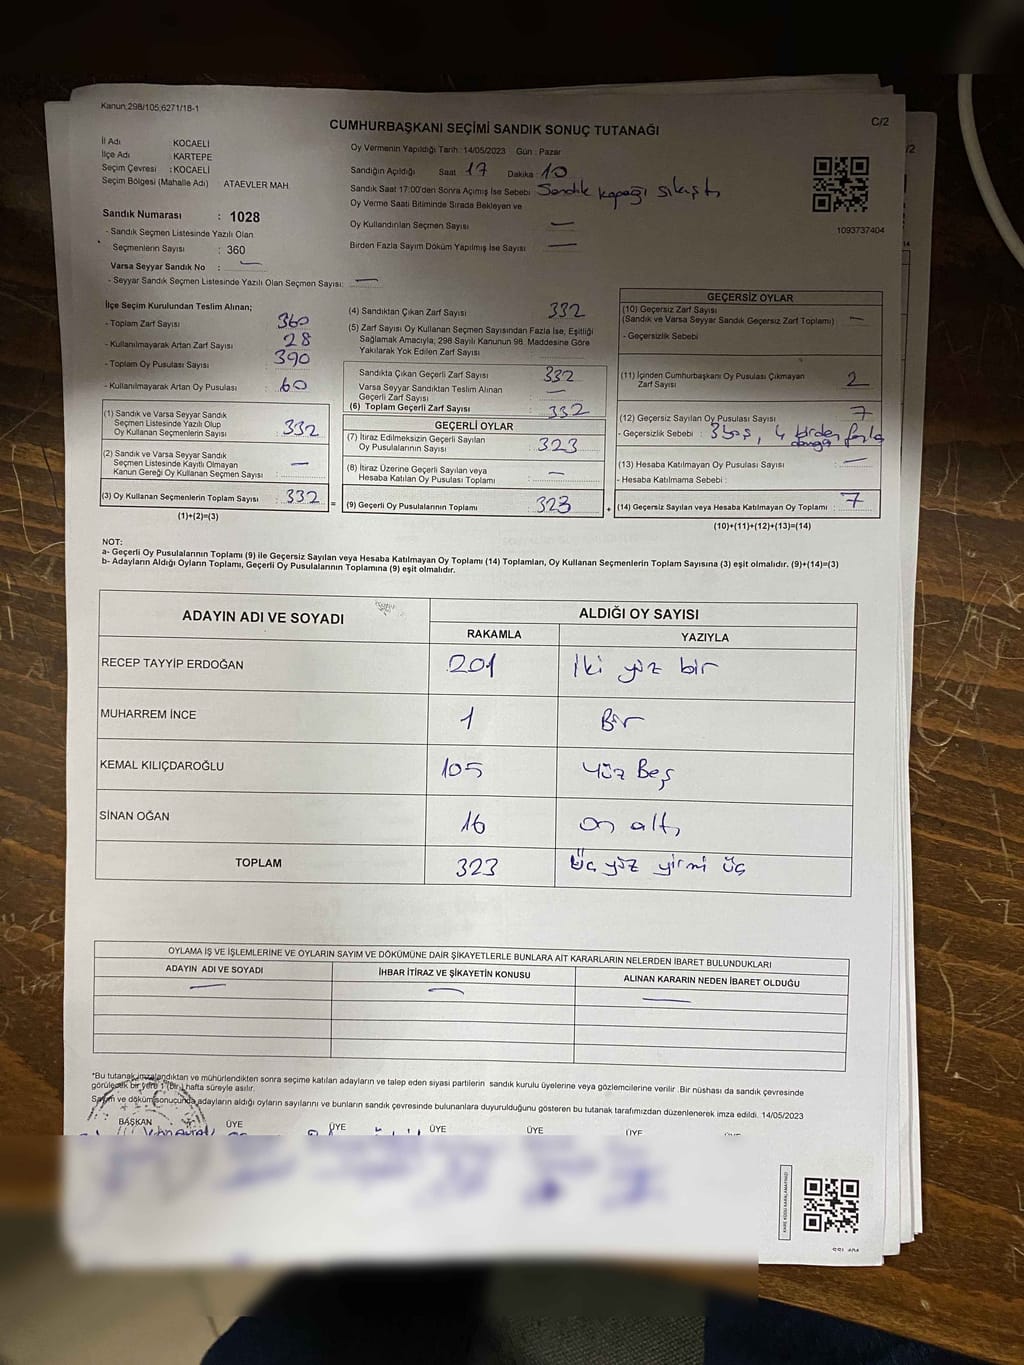 Kanun;298/105;6271/18-1
C/2
CUMHURBAŞKANI SEÇİMİ SANDIK SONUÇ TUTANAĞI
İl Adı : KOCAELİ
İlçe Adı : KARTEPE
Seçim Çevresi : KOCAELİ
Seçim Bölgesi (Mahalle Adı) : ATAEVLER MAH.
Sandık Numarası : 1028
- Sandık Seçmen Listesinde Yazılı Olan
Seçmenlerin Sayısı : 360
Varsa Seyyar Sandık No : —
- Seyyar Sandık Seçmen Listesinde Yazılı Olan Seçmen Sayısı: —
Oy Vermenin Yapıldığı Tarih :14/05/2023 Gün : Pazar
Sandığın Açıldığı Saat 17 Dakika : 10
Sandık Saat 17:00'den Sonra Açımış İse Sebebi : Sandık kapağı sıkıştı
Oy Verme Saati Bitiminde Sırada Bekleyen ve
Oy Kullandırılan Seçmen Sayısı —
Birden Fazla Sayım Döküm Yapılmış İse Sayısı —
1093737404
İlçe Seçim Kurulundan Teslim Alınan;
- Toplam Zarf Sayısı : 360
- Kullanılmayarak Artan Zarf Sayısı : 28
- Toplam Oy Pusulası Sayısı : 390
- Kullanılmayarak Artan Oy Pusulası : 60
(1) Sandık ve Varsa Seyyar Sandık
Seçmen Listesinde Yazılı Olup
Oy Kullanan Seçmenlerin Sayısı : 332
(2) Sandık ve Varsa Seyyar Sandık
Seçmen Listesinde Kayıtlı Olmayan
Kanun Gereği Oy Kullanan Seçmen Sayısı : —
(3) Oy Kullanan Seçmenlerin Toplam Sayısı : 332
(1)+(2)=(3)
(4) Sandıktan Çıkan Zarf Sayısı : 332
(5) Zarf Sayısı Oy Kullanan Seçmen Sayısından Fazla İse, Eşitliği
Sağlamak Amacıyla; 298 Sayılı Kanunun 98. Maddesine Göre
Yakılarak Yok Edilen Zarf Sayısı :
Sandıkta Çıkan Geçerli Zarf Sayısı : 332
Varsa Seyyar Sandıktan Teslim Alınan
Geçerli Zarf Sayısı : —
(6) Toplam Geçerli Zarf Sayısı : 332
GEÇERLİ OYLAR
(7) İtiraz Edilmeksizin Geçerli Sayılan
Oy Pusulalarının Sayısı : 323
(8) İtiraz Üzerine Geçerli Sayılan veya
Hesaba Katılan Oy Pusulası Toplamı : —
=
(9) Geçerli Oy Pusulalarının Toplamı : 323
+
GEÇERSİZ OYLAR
(10) Geçersiz Zarf Sayısı
(Sandık ve Varsa Seyyar Sandık Geçersiz Zarf Toplamı) : —
- Geçersizlik Sebebi :
(11) İçinden Cumhurbaşkanı Oy Pusulası Çıkmayan
Zarf Sayısı : 2
(12) Geçersiz Sayılan Oy Pusulası Sayısı : 7
- Geçersizlik Sebebi : 3 boş, 4 birden fazla
damga
(13) Hesaba Katılmayan Oy Pusulası Sayısı : —
- Hesaba Katılmama Sebebi :
(14) Geçersiz Sayılan veya Hesaba Katılmayan Oy Toplamı : 7
(10)+(11)+(12)+(13)=(14)
NOT:
a- Geçerli Oy Pusulalarının Toplamı (9) ile Geçersiz Sayılan veya Hesaba Katılmayan Oy Toplamı (14) Toplamları, Oy Kullanan Seçmenlerin Toplam Sayısına (3) eşit olmalıdır. (9)+(14)=(3)
b- Adayların Aldığı Oyların Toplamı, Geçerli Oy Pusulalarının Toplamına (9) eşit olmalıdır.
ADAYIN ADI VE SOYADI ALDIĞI OY SAYISI
RAKAMLA YAZIYLA
RECEP TAYYİP ERDOĞAN 201 İki yüz bir
MUHARREM İNCE 1 Bir
KEMAL KILIÇDAROĞLU 105 Yüz Beş
SİNAN OĞAN 16 on altı
TOPLAM 323 üç yüz yirmi üç
OYLAMA İŞ VE İŞLEMLERİNE VE OYLARIN SAYIM VE DÖKÜMÜNE DAİR ŞİKAYETLERLE BUNLARA AİT KARARLARIN NELERDEN İBARET BULUNDUKLARI
ADAYIN ADI VE SOYADI İHBAR İTİRAZ VE ŞİKAYETİN KONUSU ALINAN KARARIN NEDEN İBARET OLDUĞU
— — —
*Bu tutanak imzalandıktan ve mühürlendikten sonra seçime katılan adayların ve talep eden siyasi partilerin sandık kurulu üyelerine veya gözlemcilerine verilir .Bir nüshası da sandık çevresinde
görülecek bir yere 1 (bir) hafta süreyle asılır.
Sayım ve döküm sonucunda adayların aldığı oyların sayılarını ve bunların sandık çevresinde bulunanlara duyurulduğunu gösteren bu tutanak tarafımızdan düzenlenerek imza edildi. 14/05/2023
BAŞKAN ÜYE ÜYE ÜYE ÜYE ÜYE